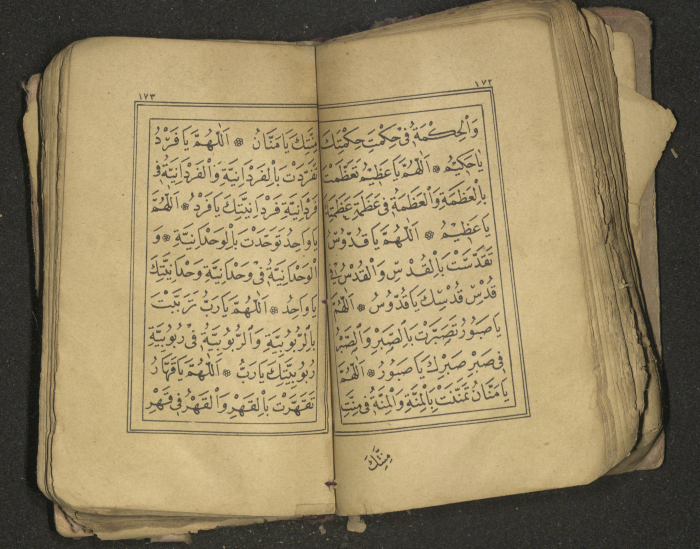 ١٧٢
وَالْحِكْمَةُ فِي حِكْمَتِ حِكْمَتِكَ
يَا حَكِيْمُ ❁ اَللّٰهُمَّ يَا عَظِيْمُ تَعَظَّمْتَ
بِالْعَظَمَةِ وَالْعَظَمَةُ فِي عَظَمَةِ عَظَمَتِكَ
يَا عَظِيْمُ ❁ اَللّٰهُمَّ يَا قُدُّوْسُ
تَقَدَّسْتَ بِالْقُدْسِ وَالْقُدْسُ فِي
قُدْسِ قُدْسِكَ يَا قُدُّوْسُ ❁ اَللّٰهُمَّ
يَا صَبُوْرُ تَصَبَّرْتَ بِالصَّبْرِ وَالصَّبْرُ
فِي صَبْرِ صَبْرِكَ يَا صَبُوْرُ ❁ اَللّٰهُمَّ
يَا مَنَّانُ تَمَنَّنْتَ بِالْمِنَّةِ وَالْمِنَّةُ فِي مِنَّتِ
مِنَّتِكَ
١٧٣
مِنَّتِكَ يَا مَنَّانُ ❁ اَللّٰهُمَّ يَا فَرْدُ
تَفَرَّدْتَ بِالْفَرْدَانِيَّةِ وَالْفَرْدَانِيَّةُ فِي
فَرْدَانِيَّةِ فَرْدَانِيَّتِكَ يَا فَرْدُ ❁ اَللّٰهُمَّ
يَا وَاحِدُ تَوَحَّدْتَ بِالْوَحْدَانِيَّةِ ❁ وَ
الْوَحْدَانِيَّةُ فِي وَحْدَانِيَّةِ وَحْدَانِيَّتِكَ
يَا وَاحِدُ ❁ اَللّٰهُمَّ يَا رَبُّ تَرَبَّبْتَ
بِالرُّبُوْبِيَّةِ وَالرُّبُوْبِيَّةُ فِي رُبُوْبِيَّةِ
رُبُوْبِيَّتِكَ يَا رَبُّ ❁ اَللّٰهُمَّ يَا قَهَّارُ
تَقَهَّرْتَ بِالْقَهْرِ وَالْقَهْرُ فِي قَهْرِ